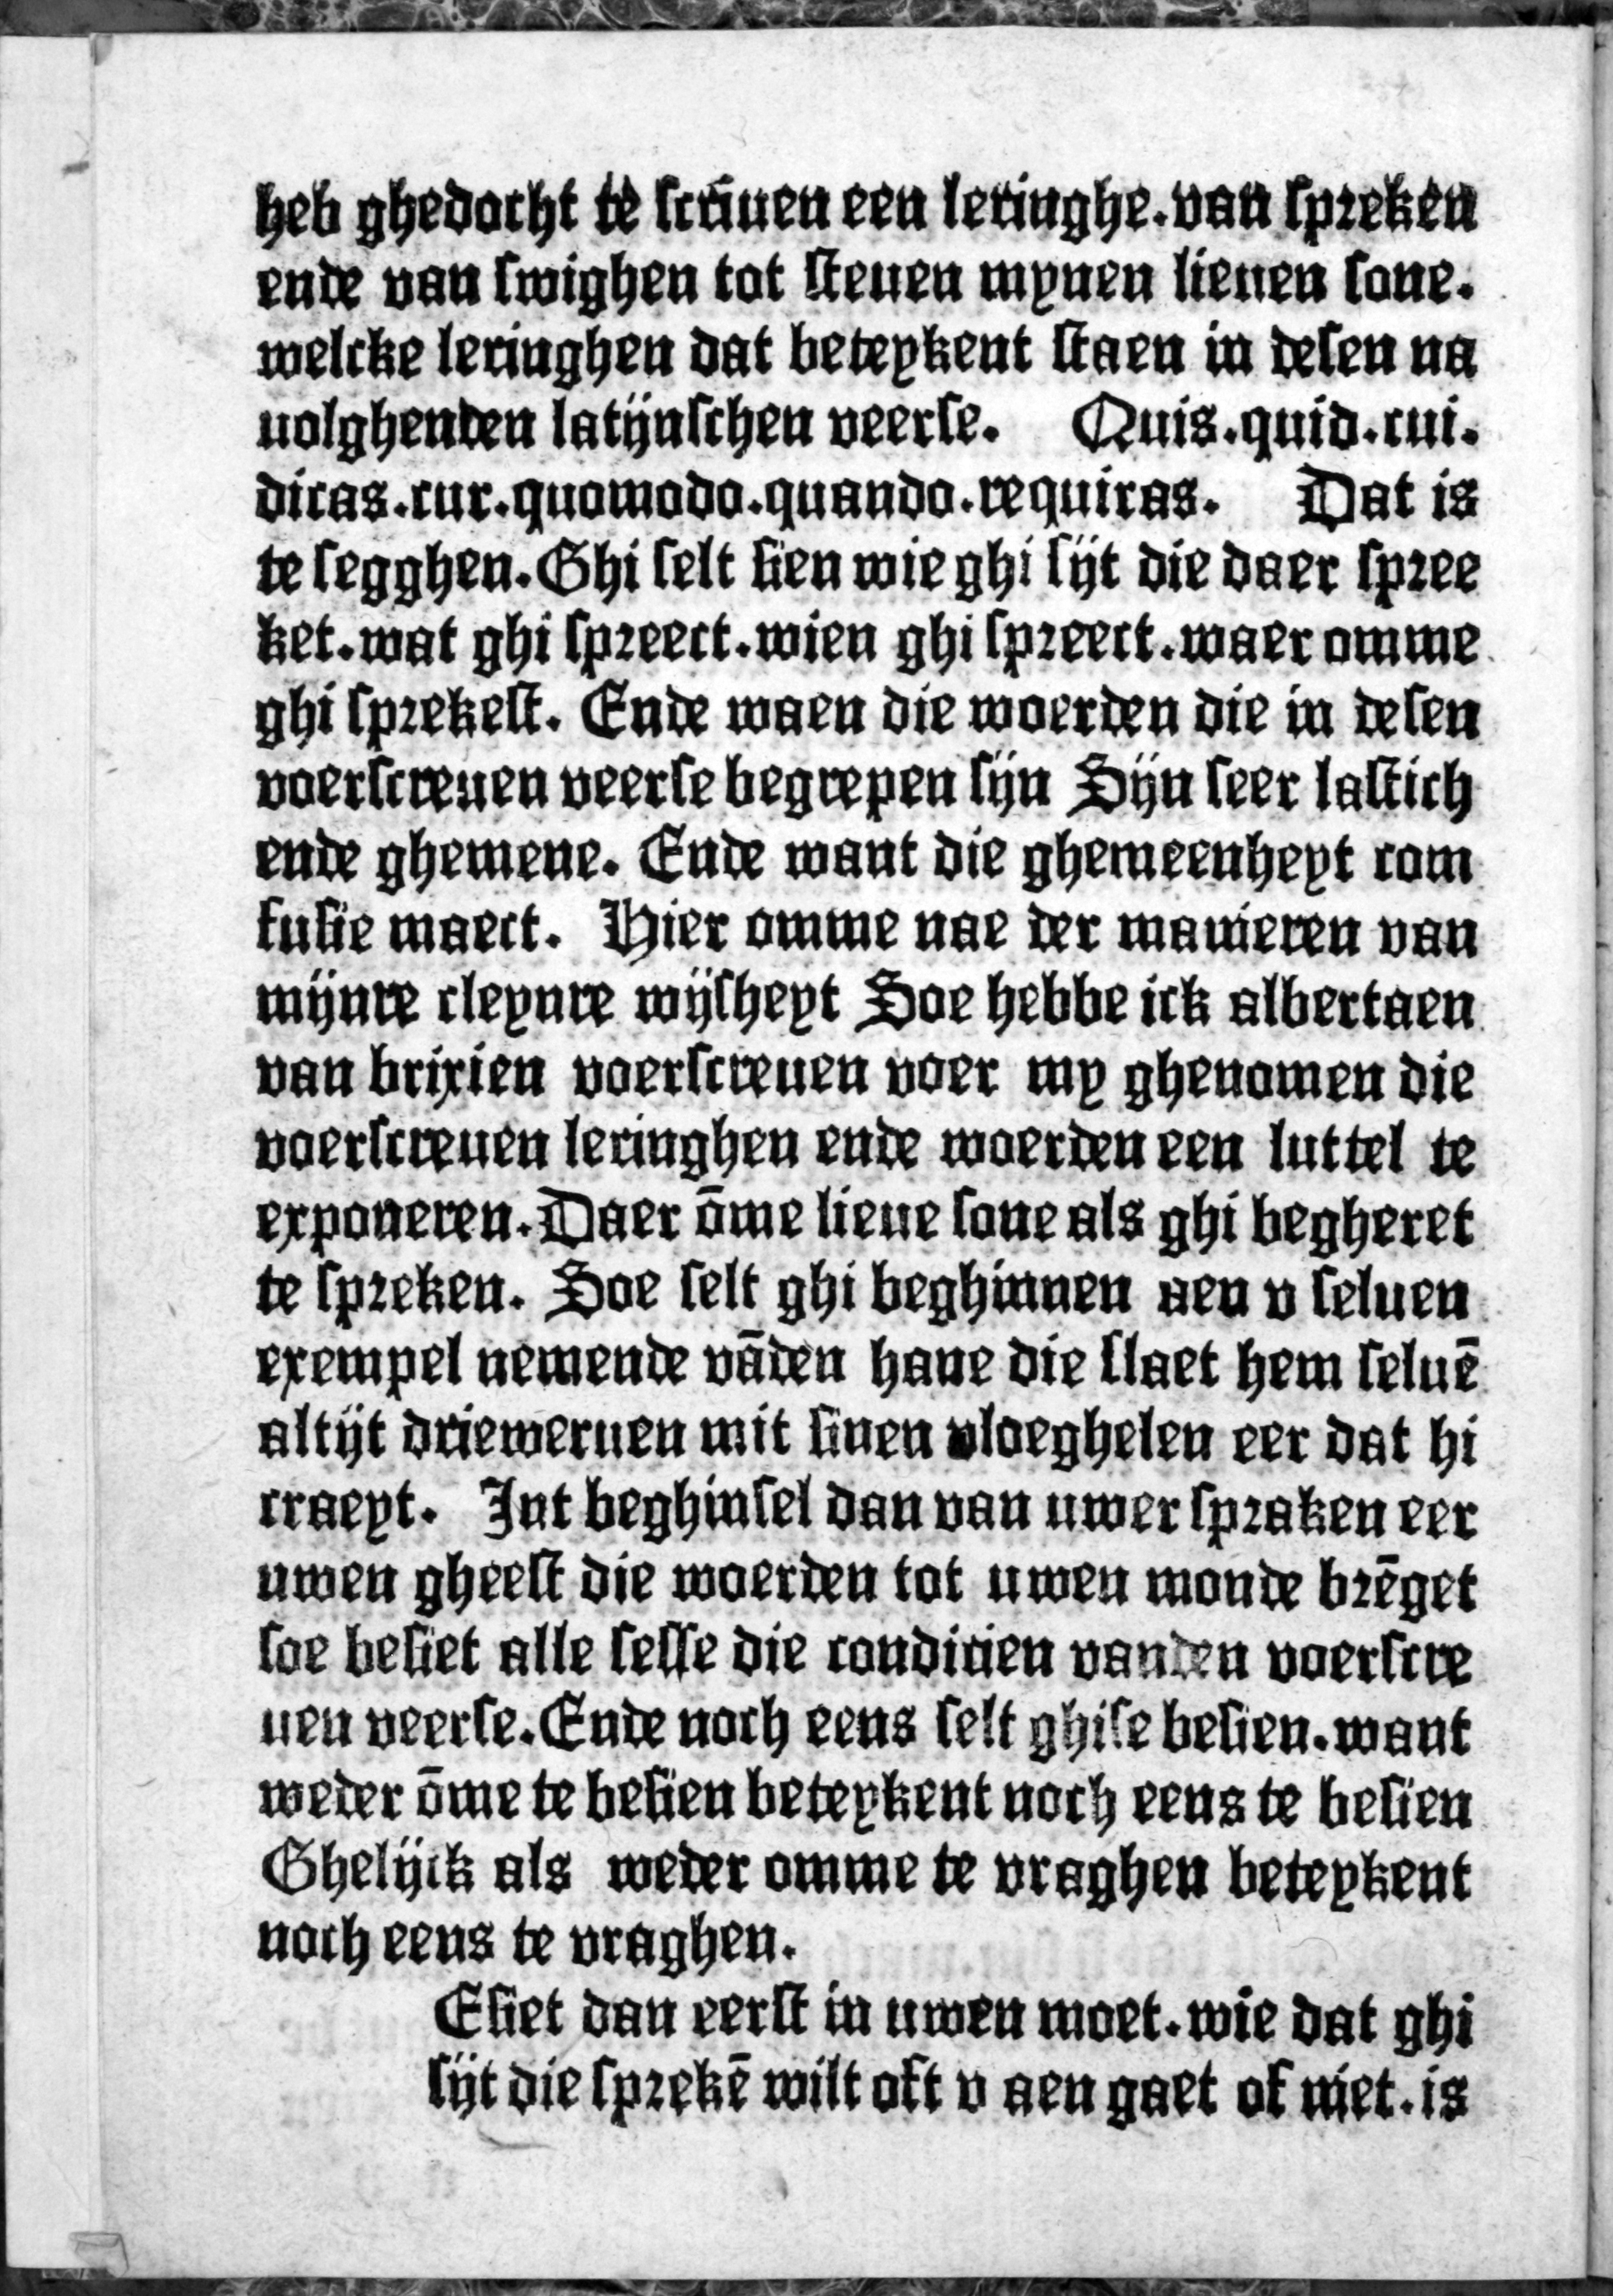 heb ghedocht te scriuen een leringhe.van spreken
ende van swighen tot steuen mynen lieuen sone.
welcke leringhen dat beteykent staen in desen na
uolghenden latijnschen veerse. Quis.quid.cui.
dicas.cur.quomodo.quando.requiras. Dat is
te segghen.Ghi selt sien wie ghi sijt die daer spree
ket.wat ghi spreect.wien ghi spreect.waer omme
ghi sprekest. Ende waen die woerden die in desen
voerscreuen veerse begrepen sijn Sijn seer lastich
ende ghemene. Ende want die ghemeenheyt com
fusie maect. Hier omme nae der manieren van
mijnre cleynre wijsheyt Soe hebbe ick albertaen
van brixien voerscreuen voer my ghenomen die
voerscreuen leringhen ende woerden een luttel te
exponeren.Daer ōme lieue sone als ghi begheret
te spreken. Soe selt ghi beghinnen aen v seluen
exempel nemende vāden hane die slaet hem seluē
altijt drieweruen mit sinen vloeghelen eer dat hi
craeyt. Int beghinsel dan van uwer spraken eer
uwen gheest die woerden tot uwen monde brēget
soe besiet alle sesse die condicien vanden voerscre
uen veerse.Ende noch eens selt ghise besien.want
weder ōme te besien beteykent noch eens te besien
Ghelijck als weder omme te vraghen beteykent
noch eens te vraghen.
Esiet dan eerst in uwen moet.wie dat ghi
sijt die sprekē wilt oft v aen gaet of niet.is